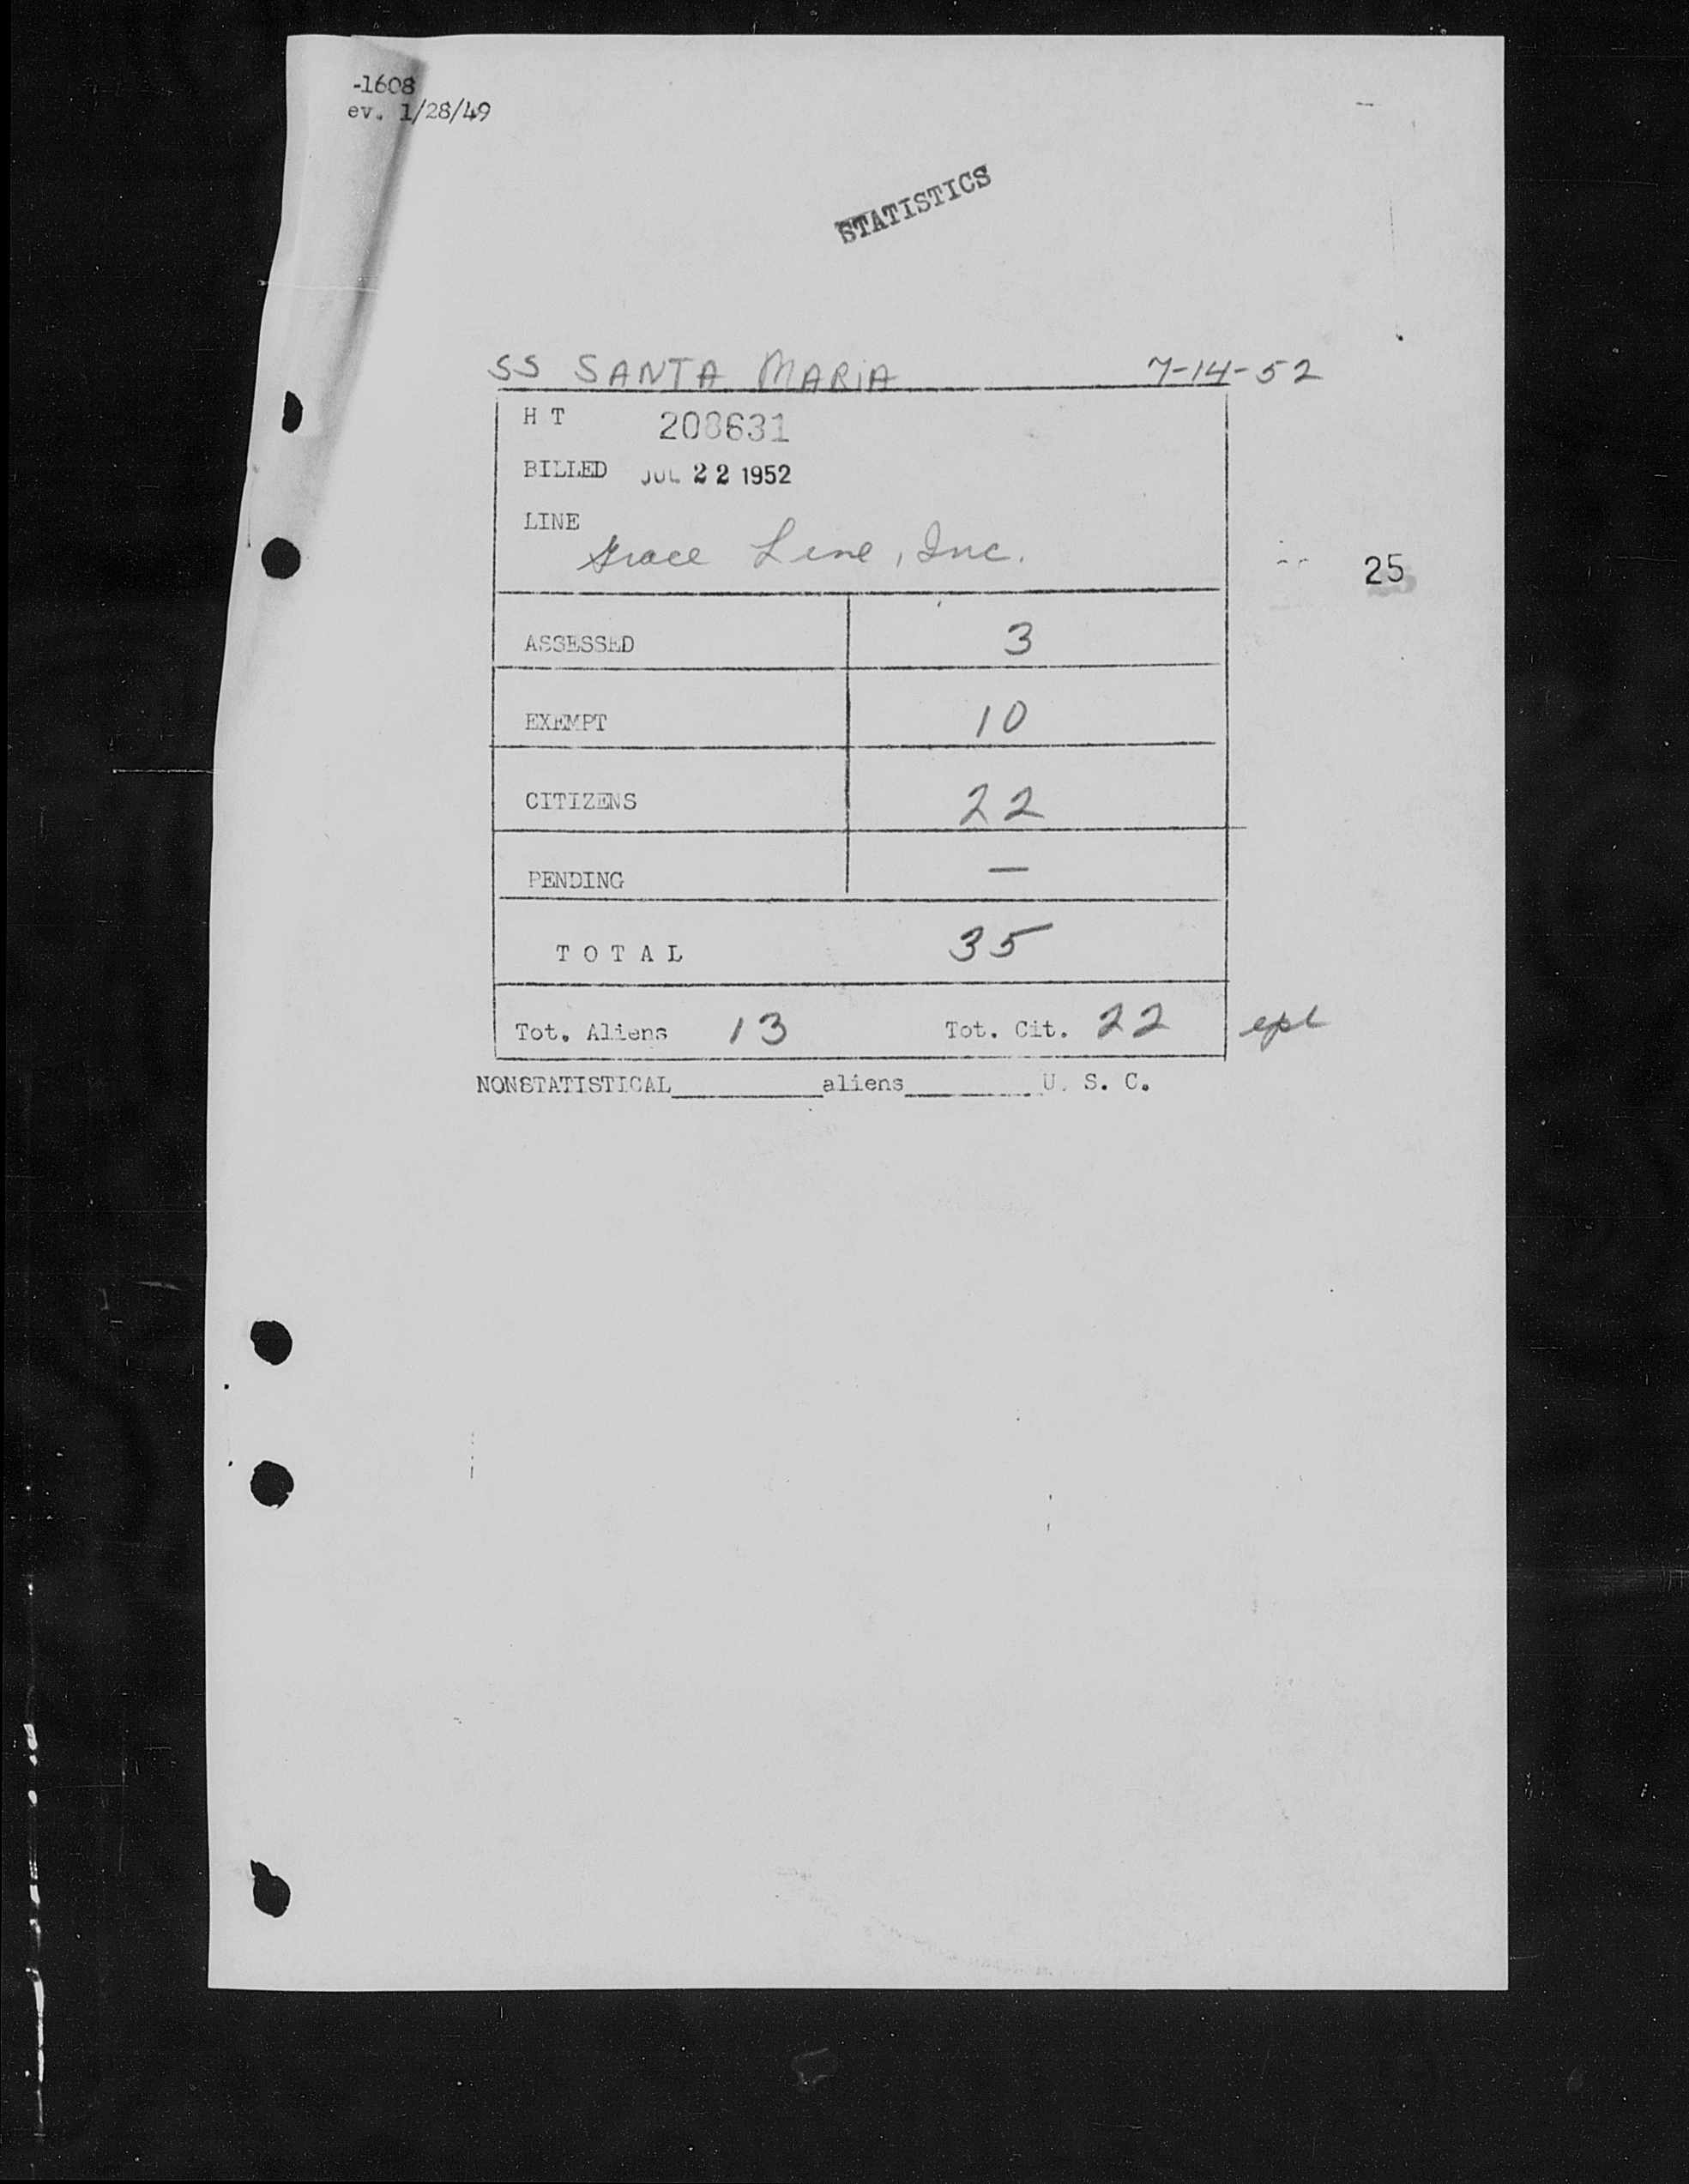 -1608
ev. 1/28/49
STATISTICS
SS SANTA MARIA 7-14-52
H T 208631
BILLED JUL 22 1952
LINE
Grace Line, Inc.
25
ASSESSED 3
EXEMPT 10
CITIZENS 22
PENDING —
T O T A L 35
Tot. Aliens 13 Tot. Cit. 22
NONSTATISTICAL__________aliens__________U. S. C.